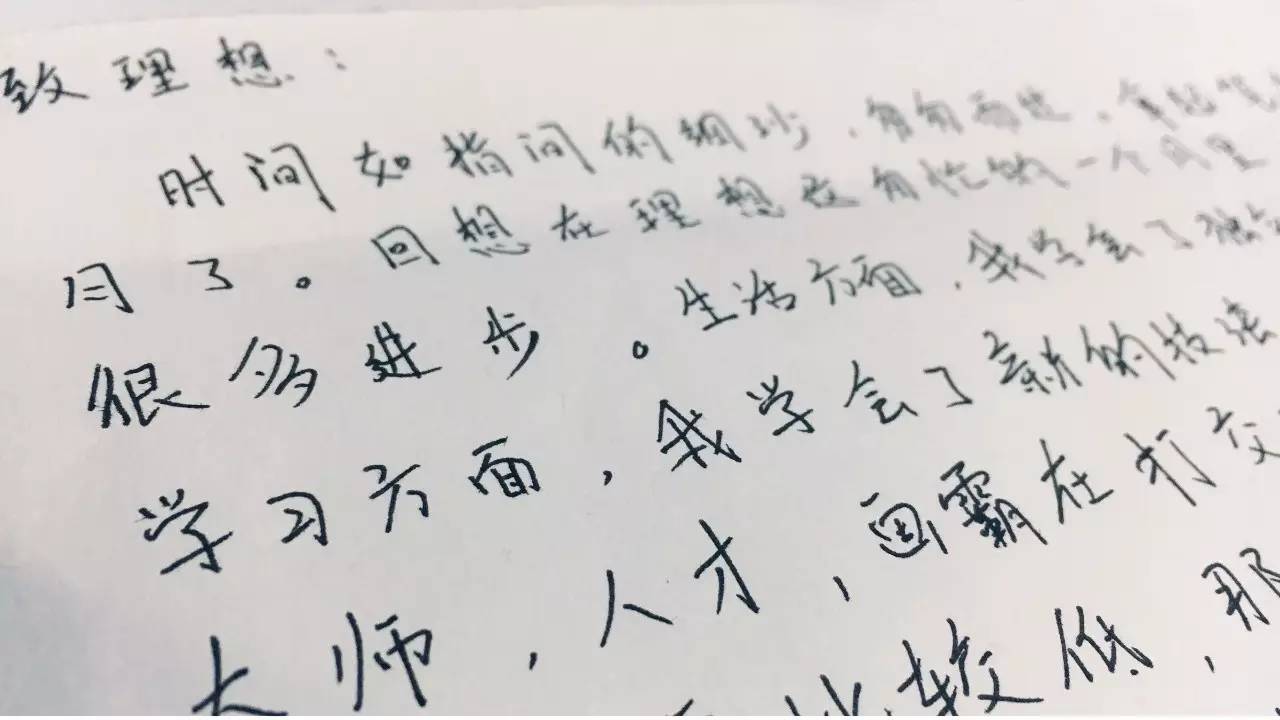 致理想：
时间如指间的细沙，匆匆而过，拿起笔
月了。回想在理想没有忙的一个月里
很多进步。生活方面，我学会了独
学习方面，我学会了新的技法
大师，人才，画霸在打交
比较低，那